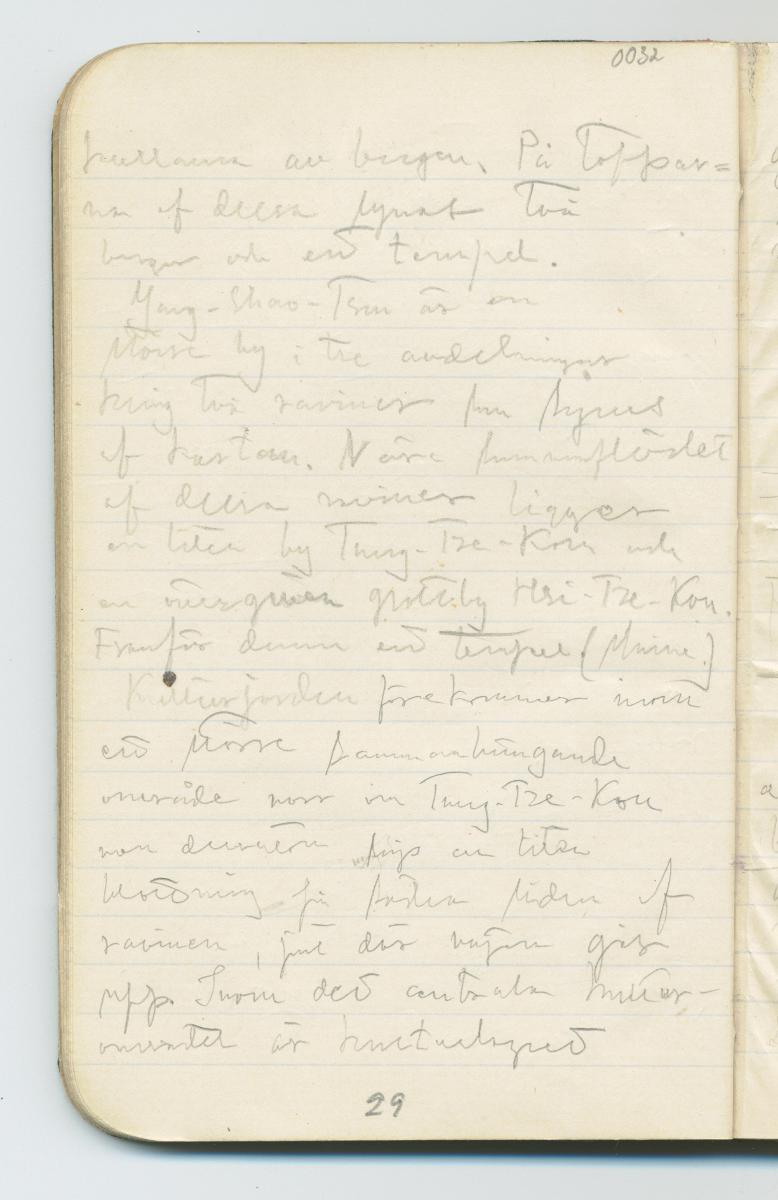 0032
av bergen. På toppar=
na af dessa synas två
byar och ett tempel.
Yang-Shao-Tsun är en
större by i tre avdelningar
kring två raviner som synes
af kartan. Nära sammanflödet
af dessa raviner ligger
en liten by Tung-Tze-Kou och
en övergiven grottby Hsi-Tze-Kou.
Framför denna ett tempel (
Kulturjorden förekommer inom
ett större sammanhängande
område norr om Tung-Tze-Kou
men dessutom en liten
blottning på södra sidan af
ravinen, just där vägen går
upp. Inom det centrala kultur-
området är kulturlagret
29